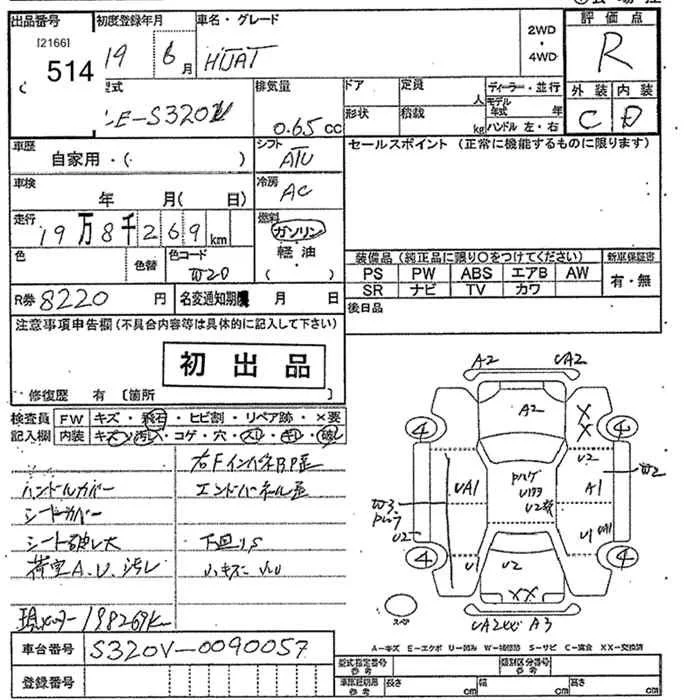 出品番号 初度登録年月 車名・グレード 評価点
[2166]
514
19 6月 HIJAT
2WD
・
4WD
R
型式 排気量 ドア 定員 ディーラー・並行
人 モデル年式 年
形状 積載 kg ハンドル 左・右
外装 内装
LE-S320V 0.65cc
C D
車歴 シフト セールスポイント (正常に機能するものに限ります)
自家用・( ) ATU
車検 冷房
年 月( 日) AC
走行 燃料
19万8千269km ガソリン
軽油
( )
色 色替 色コード
W20
装備品 (純正品に限り〇をつけてください) 新車保証書
PS PW ABS エアB AW 有・無
SR ナビ TV カワ
R券 8220円 名変通知期限 月 日 後日品
注意事項申告欄(不具合内容等は具体的に記入して下さい)
初出品
修復歴 有 [箇所 ]
検査員 FW キズ・飛石・ヒビ割・リペア跡・×要
記入欄 内装 キズ・汚れ・コゲ・穴・スレ・キレ・破レ
右FインパネBP歪
ハンドルカバー エンドパネル歪
シートカバー
シート破レ大 下回りS
荷室A.U.汚レ 小キズ 小U
現メーター198269km
A2 UA2
A2
XX
4 4
U2
W2
UA1 A1
W3
U2
U2
U1
U1
4 4
U2
XX
スペア
UA2XX A3
A-キズ E-エクボ U-凹み W-補修跡 S-サビ C-腐食 XX-交換済
車台番号 S320V-0090057
型式指定番号 参考 類別区分番号 参考
登録番号
車庫証明用 参考 長さ cm 幅 cm 高さ cm